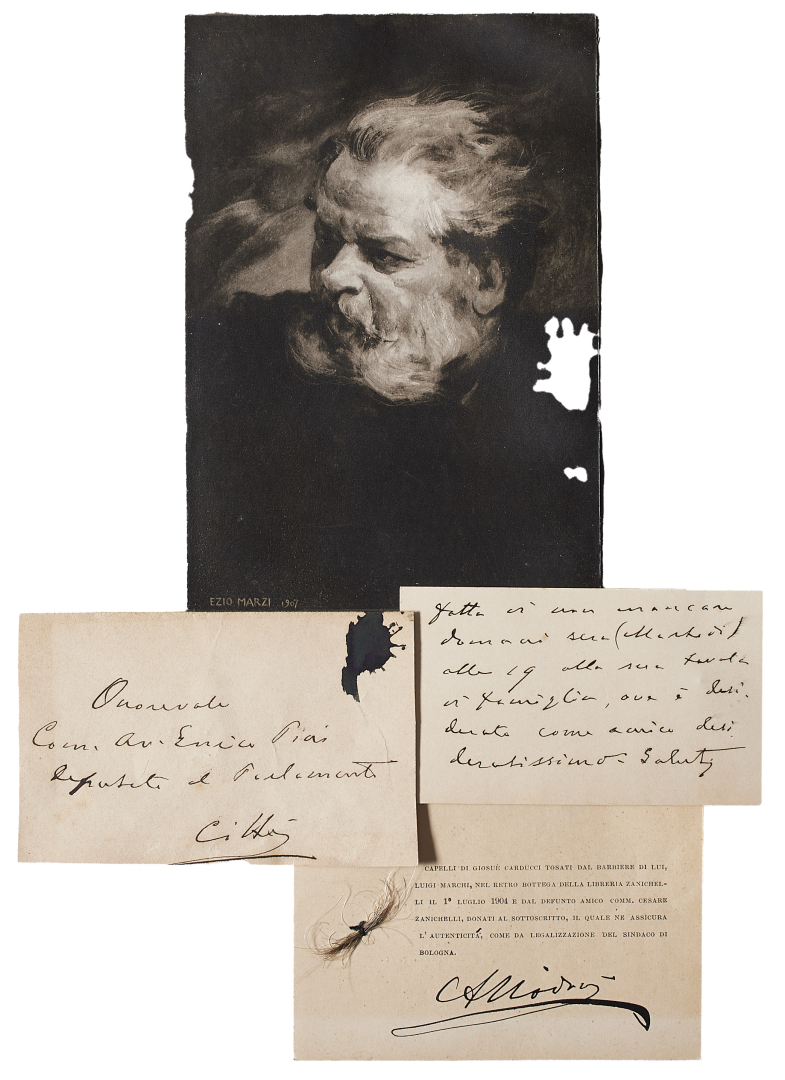 EZIO MARZI 1907
Onorevole
Com. Av. Enrico Pini
deputato al Parlamento
Città
fatta vi non mancare
domani sera (Martedì)
alle 19 alla sua tavola
di famiglia, ove è desi-
derato come amico desi
deratissimo - Saluti
CAPELLI DI GIOSUÈ CARDUCCI TOSATI DAL BARBIERE DI LUI,
LUIGI MARCHI, NEL RETRO BOTTEGA DELLA LIBRERIA ZANICHEL-
LI IL 1° LUGLIO 1904 E DAL DEFUNTO AMICO COMM. CESARE
ZANICHELLI, DONATI AL SOTTOSCRITTO, IL QUALE NE ASSICURA
L'AUTENTICITÀ, COME DA LEGALIZZAZIONE DEL SINDACO DI
BOLOGNA.